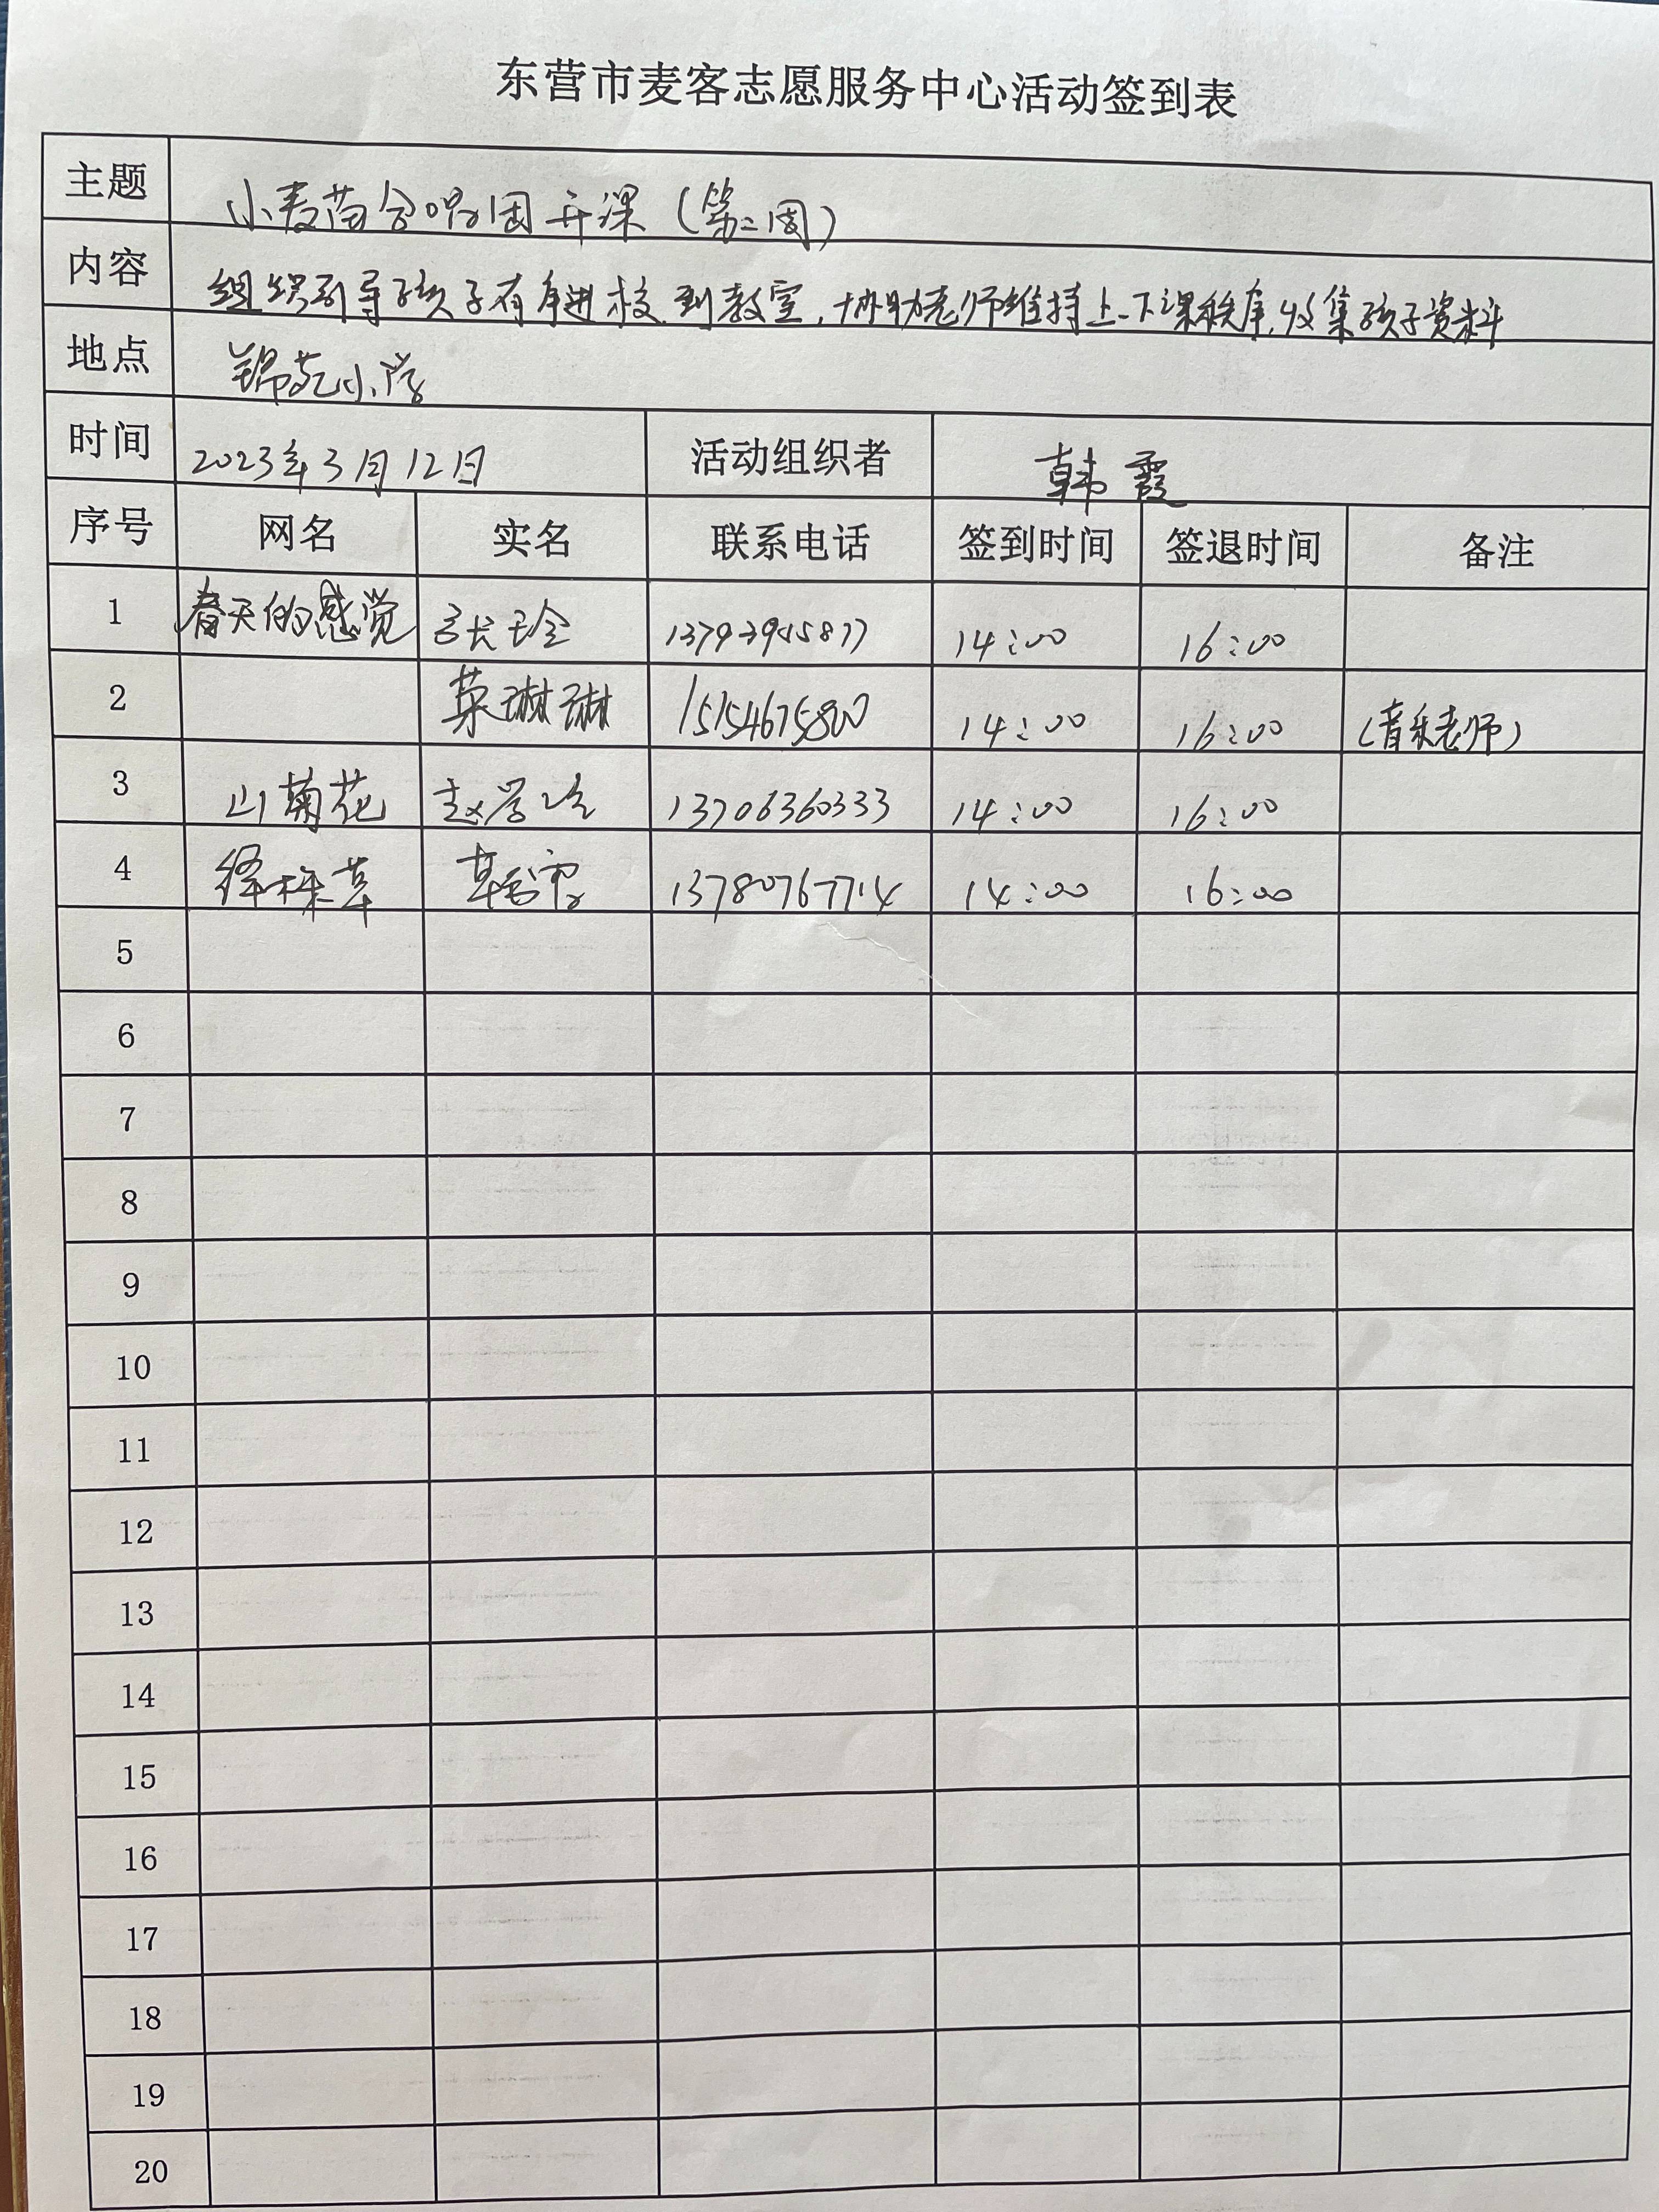 东营市麦客志愿服务中心活动签到表
主题 小麦苗合唱团开课(第二周)
内容 组织引导孩子有序进校,到教室,协助老师维持上下课秩序,收集孩子资料
地点 锦苑小学
时间 2023年3月12日 活动组织者 韩霞
序号 网名 实名 联系电话 签到时间 签退时间 备注
1 春天的感觉 14:00 16:00
2 琳琳 15154675800 14:00 16:00 (音乐老师)
3 山菊花 13706360333 14:00 16:00
4 绛株草 韩霞 13780767714 14:00 16:00
5
6
7
8
9
10
11
12
13
14
15
16
17
18
19
20